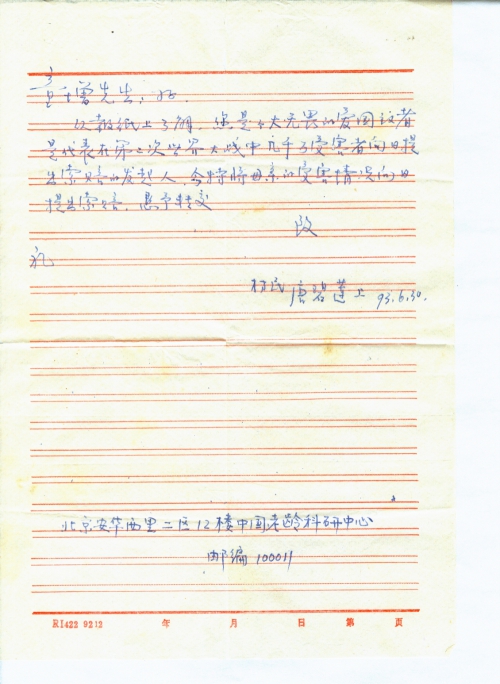 童增先生：好.
从报纸上了解，您是个大无畏的爱国志者
是代表在第二次世界大战中几千万受害者向日提
出索赔的发起人，今特将母亲的受害情况向日
提出索赔，恳予转交
致
礼
村民 唐碧莲上 93.6.30.
北京安华西里二区12楼中国老龄科研中心
邮编 100011
RI422 9212 年 月 日 第 页